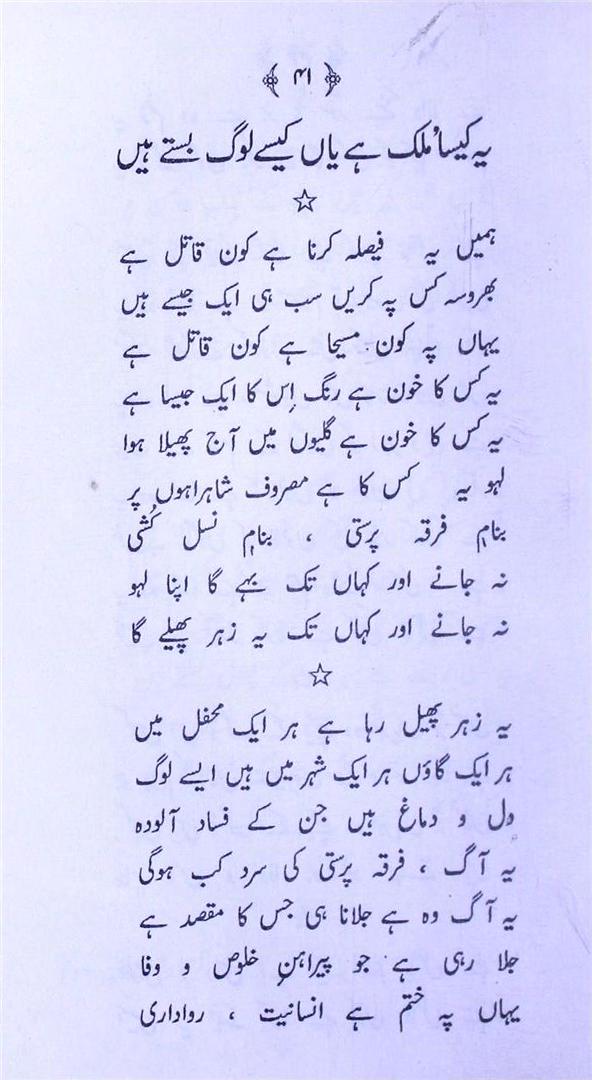 ۴۱
یہ کیسا مُلک ہے یاں کیسے لوگ بستے ہیں
☆
ہمیں یہ فیصلہ کرنا ہے کون قاتل ہے
بھروسہ کس پہ کریں سب ہی ایک جیسے ہیں
یہاں پہ کون مسیحا ہے کون قاتل ہے
یہ کس کا خون ہے رنگ اِس کا ایک جیسا ہے
یہ کس کا خون ہے گلیوں میں آج پھیلا ہوا
لہو یہ کس کا ہے مصروف شاہراہوں پر
بنام فرقہ پرستی ، بنامِ نسل کُشی
نہ جانے اور کہاں تک بہے گا اپنا لہو
نہ جانے اور کہاں تک یہ زہر پھیلے گا
☆
یہ زہر پھیل رہا ہے ہر ایک محفل میں
ہر ایک گاؤں ہر ایک شہر میں ہیں ایسے لوگ
دل و دماغ ہیں جن کے فساد آلودہ
یہ آگ ، فرقہ پرستی کی سرد کب ہوگی
یہ آگ وہ ہے جلانا ہی جس کا مقصد ہے
جلا رہی ہے جو پیراہنِ خلوص و وفا
یہاں پہ ختم ہے انسانیت ، رواداری